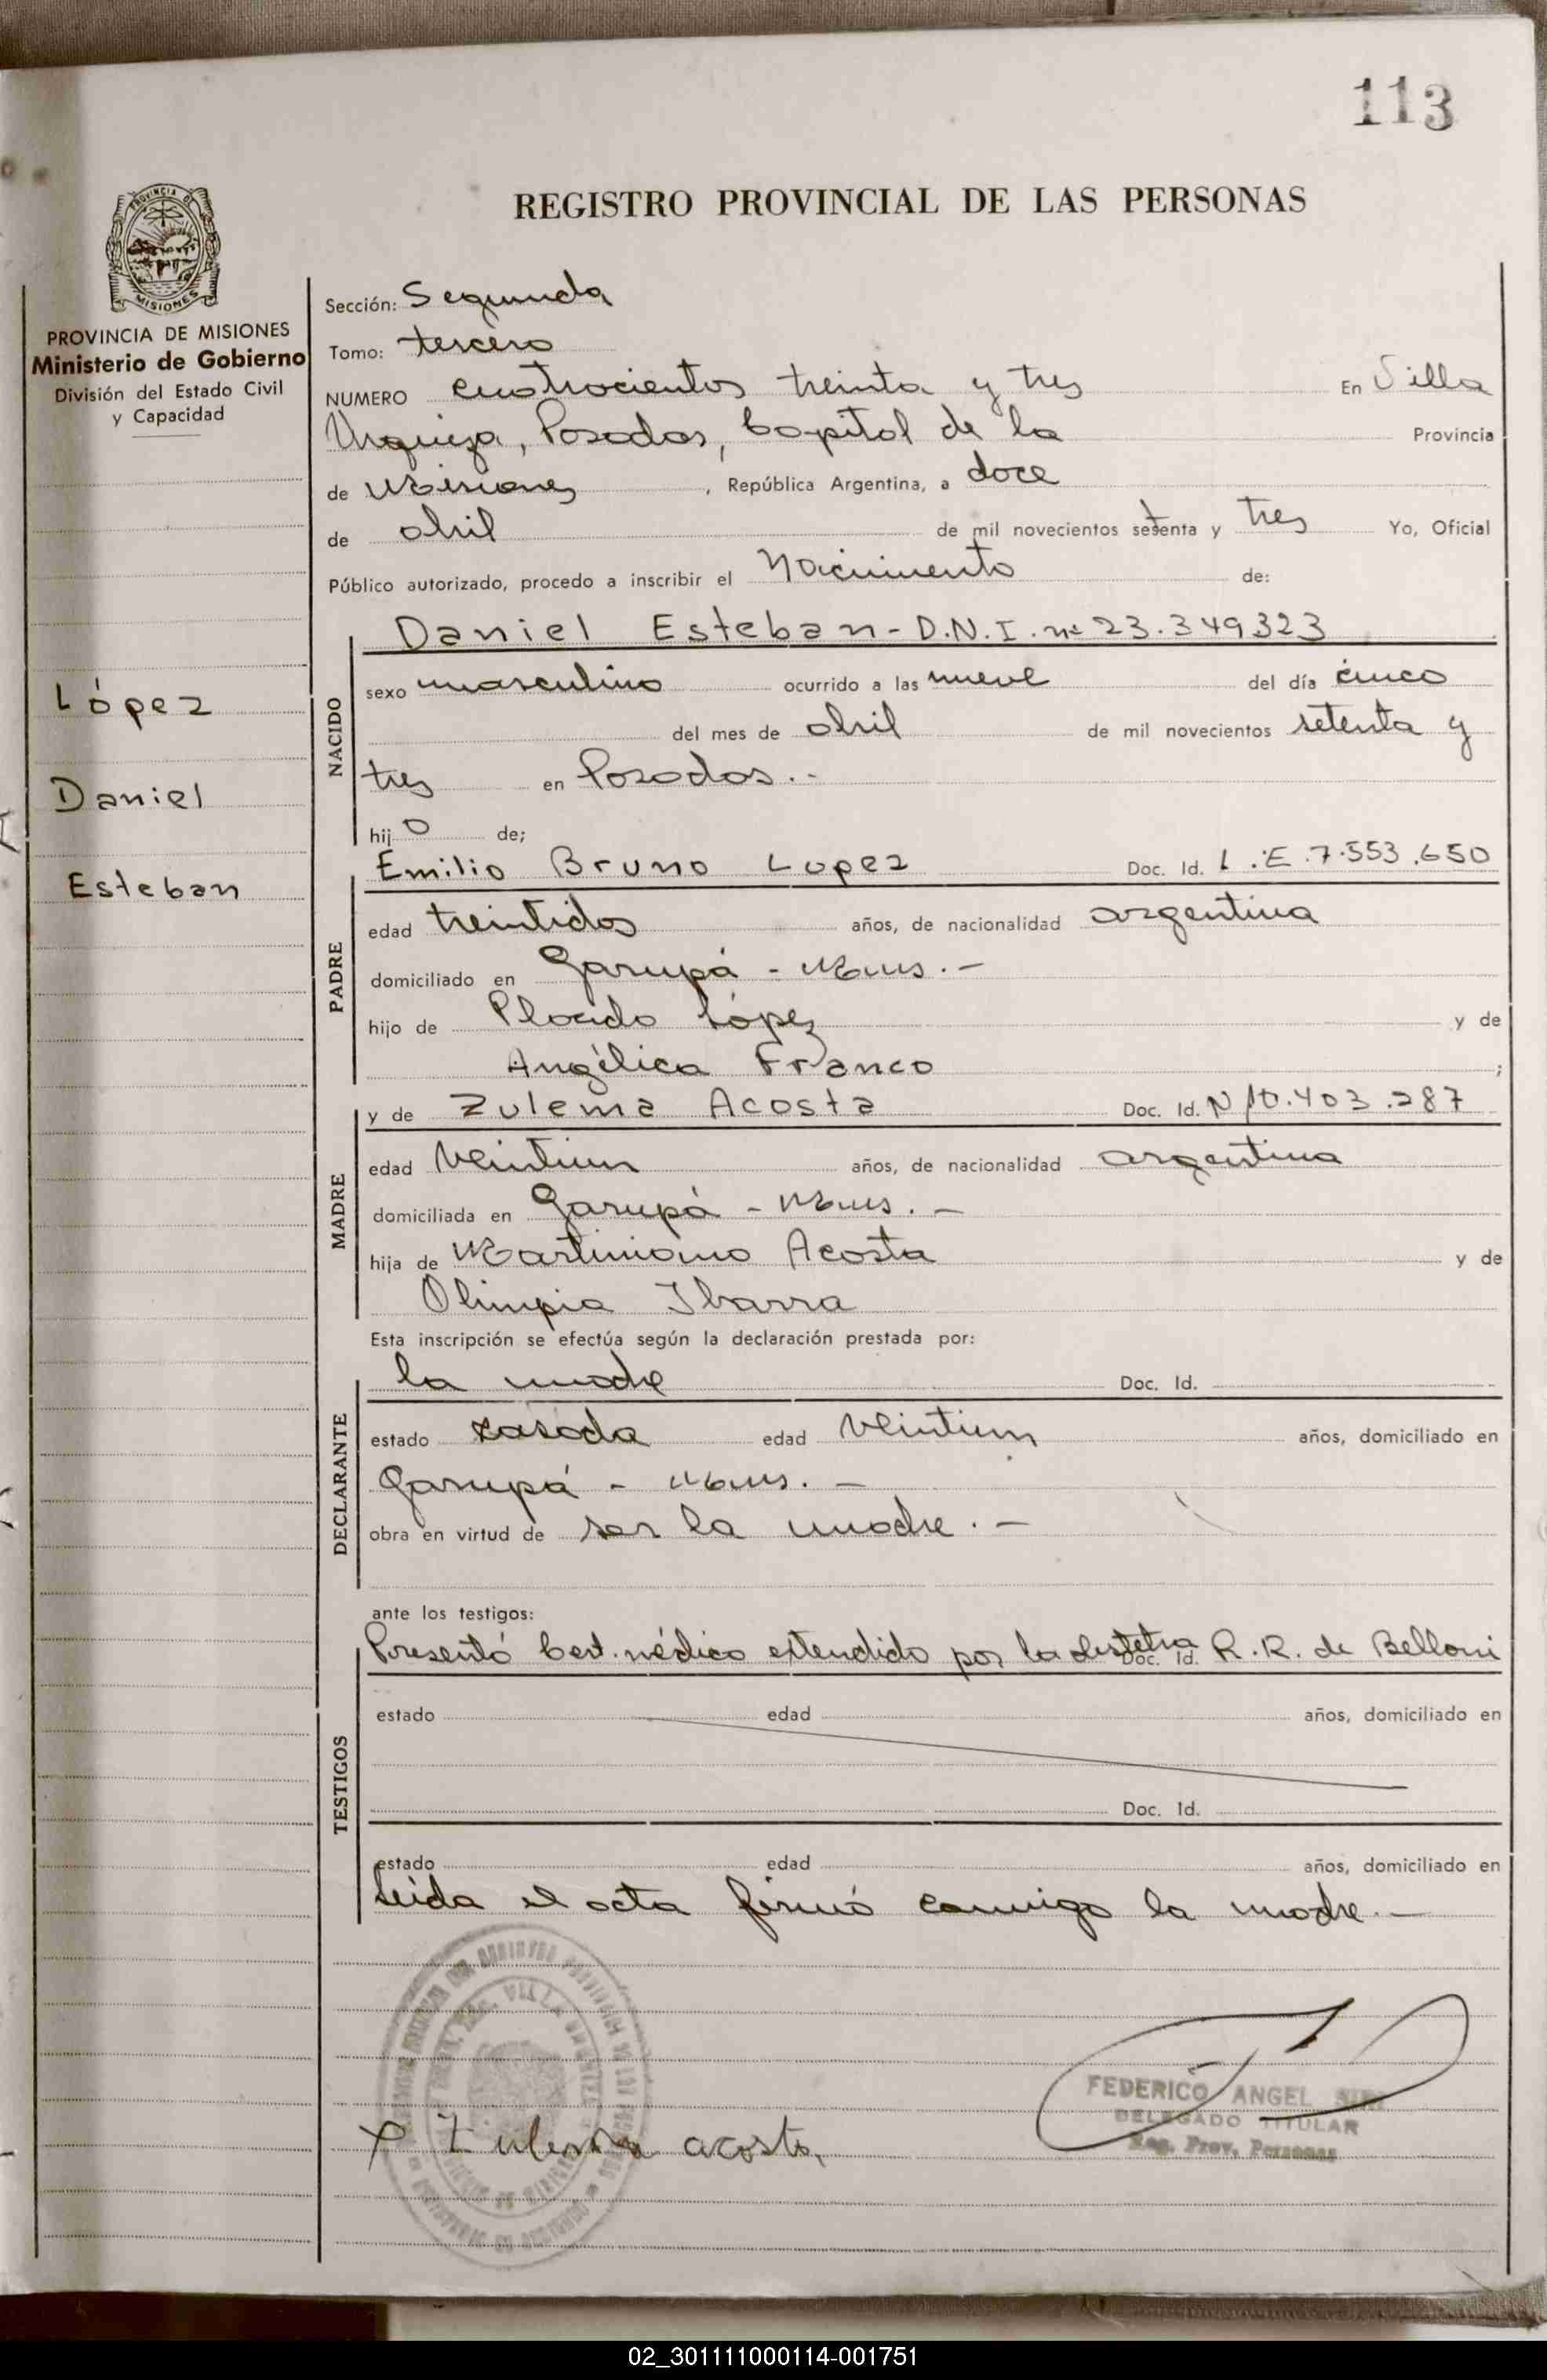 113
PROVINCIA DE
MISIONES
REGISTRO PROVINCIAL DE LAS PERSONAS
PROVINCIA DE MISIONES
Ministerio de Gobierno
División del Estado Civil
y Capacidad
López
Daniel
Esteban
Sección: Segunda
Tomo: tercero
NUMERO cuatrocientos treinta y tres En Villa
Urquiza, Posadas, Capital de la Provincia
de Misiones, República Argentina, a doce
de abril de mil novecientos setenta y tres Yo, Oficial
Público autorizado, procedo a inscribir el Nacimiento de:
Daniel Esteban - D.N.I. nº 23.349323
NACIDO
sexo masculino ocurrido a las nueve del día cinco
del mes de abril de mil novecientos setenta y
tres en Posadas.-
hijo de;
Emilio Bruno Lopez Doc. Id. L.E.7.553.650
PADRE
edad treintidos años, de nacionalidad argentina
domiciliado en Garupá - Mnes.-
hijo de Placido López y de
Angélica Franco ;
y de Zulema Acosta Doc. Id. Nº 10.403.287
MADRE
edad veintiun años, de nacionalidad argentina
domiciliada en Garupá - Mnes.-
hija de Martiniano Acosta y de
Olimpia Ibarra
Esta inscripción se efectúa según la declaración prestada por:
la madre Doc. Id.
DECLARANTE
estado casada edad veintiun años, domiciliado en
Garupá - Mnes.-
obra en virtud de ser la madre.-
ante los testigos:
Presentó Cert. médico extendido por la obstetra Doc. Id. R.R. de Belloni
TESTIGOS
estado edad años, domiciliado en
Doc. Id.
estado edad años, domiciliado en
Leida el acta firmó conmigo la madre.-
VILLA URQUIZA
FEDERICO ANGEL
DELEGADO TITULAR
Reg. Prov. Personas
x Zulema acosta
02_301111000114-001751